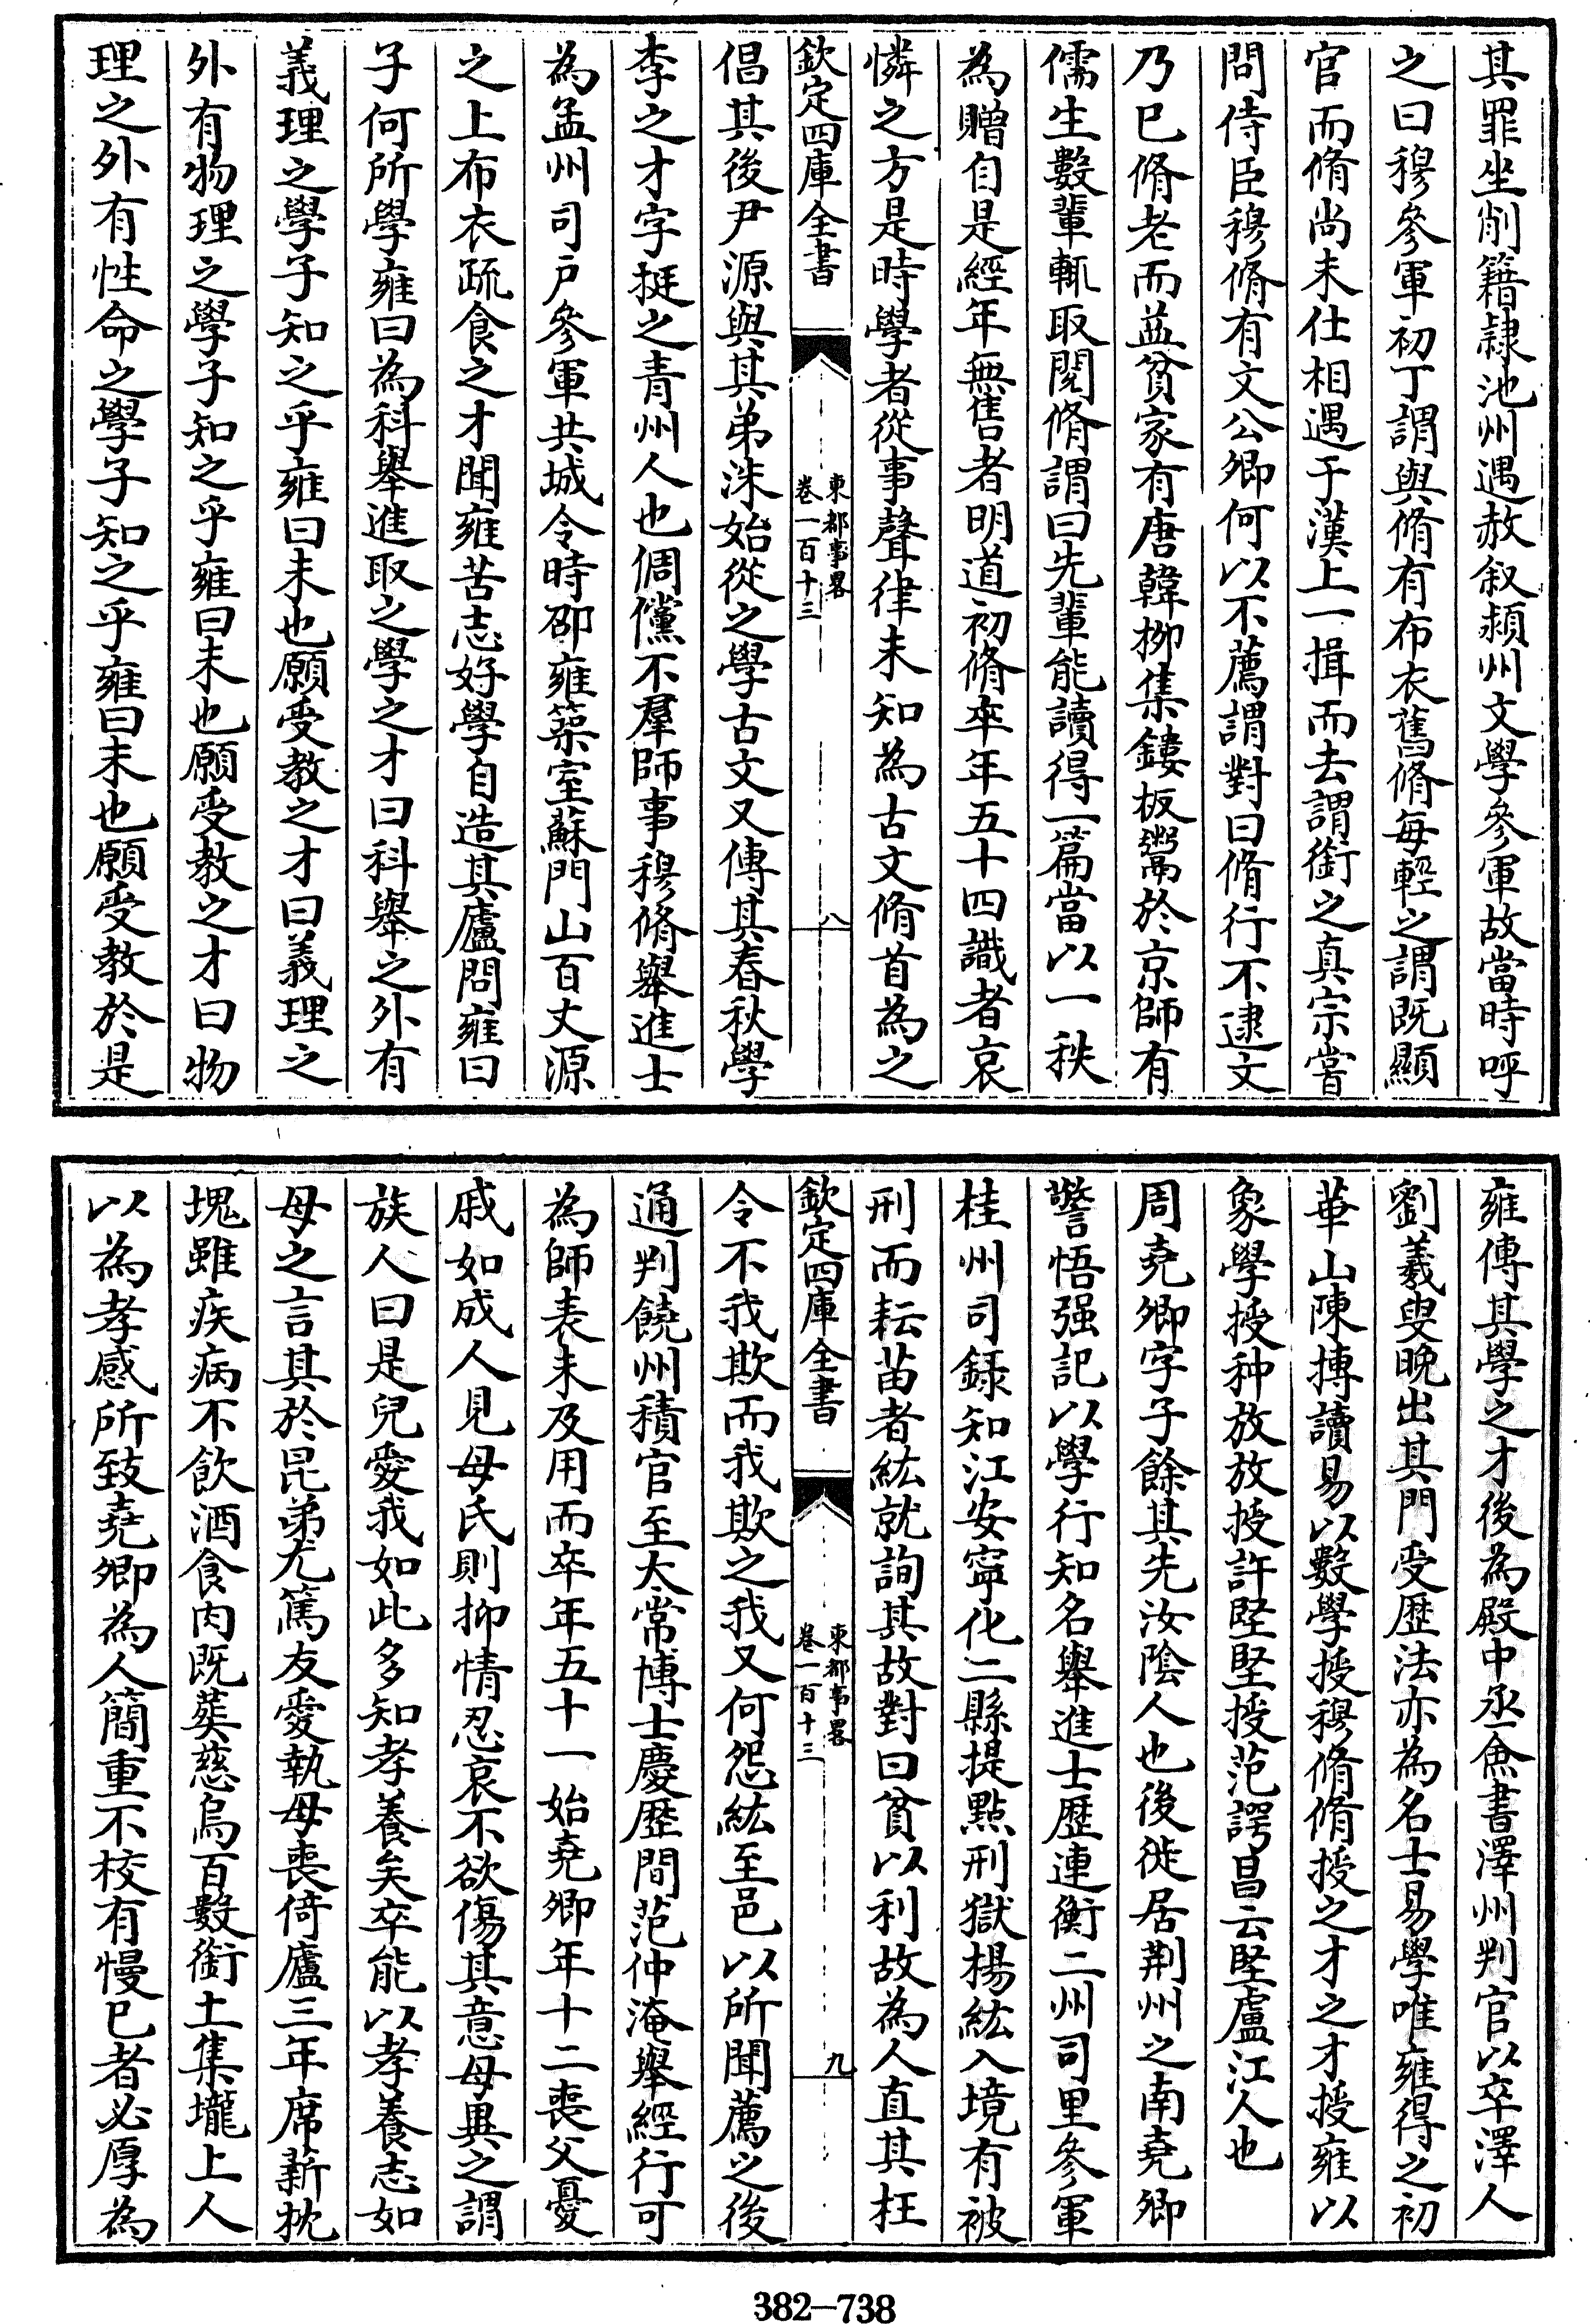 其罪坐削籍隷池州遇赦叙潁州文學參軍故當時呼
之曰穆參軍初丁謂與脩有布衣舊脩每輕之謂既顯
官而脩尚未仕相遇于漢上一揖而去謂銜之真宗嘗
問侍臣穆脩有文公卿何以不薦謂對曰脩行不逮文
乃已脩老而益貧家有唐韓栁集鏤板鬻於京師有
儒生數輩輒取閱脩謂曰先輩能讀得一篇當以一秩
為贈自是經年無售者明道初脩卒年五十四識者哀
憐之方是時學者從事聲律未知為古文脩首為之
欽定四庫全書
東都事畧
卷一百十三
八
倡其後尹源與其弟洙始從之學古文又傳其春秋學
李之才字挺之青州人也倜儻不羣師事穆脩舉進士
為孟州司戶參軍共城令時邵雍築室蘇門山百丈源
之上布衣疏食之才聞雍苦志好學自造其廬問雍曰
子何所學雍曰為科舉進取之學之才曰科舉之外有
義理之學子知之乎雍曰未也願受教之才曰義理之
外有物理之學子知之乎雍曰未也願受教之才曰物
理之外有性命之學子知之乎雍曰未也願受教於是
雍傳其學之才後為殿中丞僉書澤州判官以卒澤人
劉羲叟晚出其門受歴法亦為名士易學唯雍得之初
華山陳摶讀易以數學授穆脩脩授之才之才授雍以
象學授种放放授許堅堅授范諤昌云堅廬江人也
周堯卿字子餘其先汝陰人也後徙居荆州之南堯卿
警悟强記以學行知名舉進士歴連衡二州司里參軍
桂州司錄知江安寧化二縣提點刑獄楊紘入境有被
刑而耘苗者紘就詢其故對曰貧以利故為人直其枉
欽定四庫全書
東都事畧
卷一百十三
九
令不我欺而我欺之我又何怨紘至邑以所聞薦之後
通判饒州積官至太常博士慶歴間范仲淹舉經行可
為師表未及用而卒年五十一始堯卿年十二喪父憂
戚如成人見母氏則抑情忍哀不欲傷其意母異之謂
族人曰是兒愛我如此多知孝養矣卒能以孝養志如
母之言其於昆弟尤篤友愛執母喪倚廬三年席薪枕
塊雖疾病不飲酒食肉既葬慈烏百數銜土集壠上人
以為孝感所致堯卿為人簡重不校有慢已者必厚為
382-738